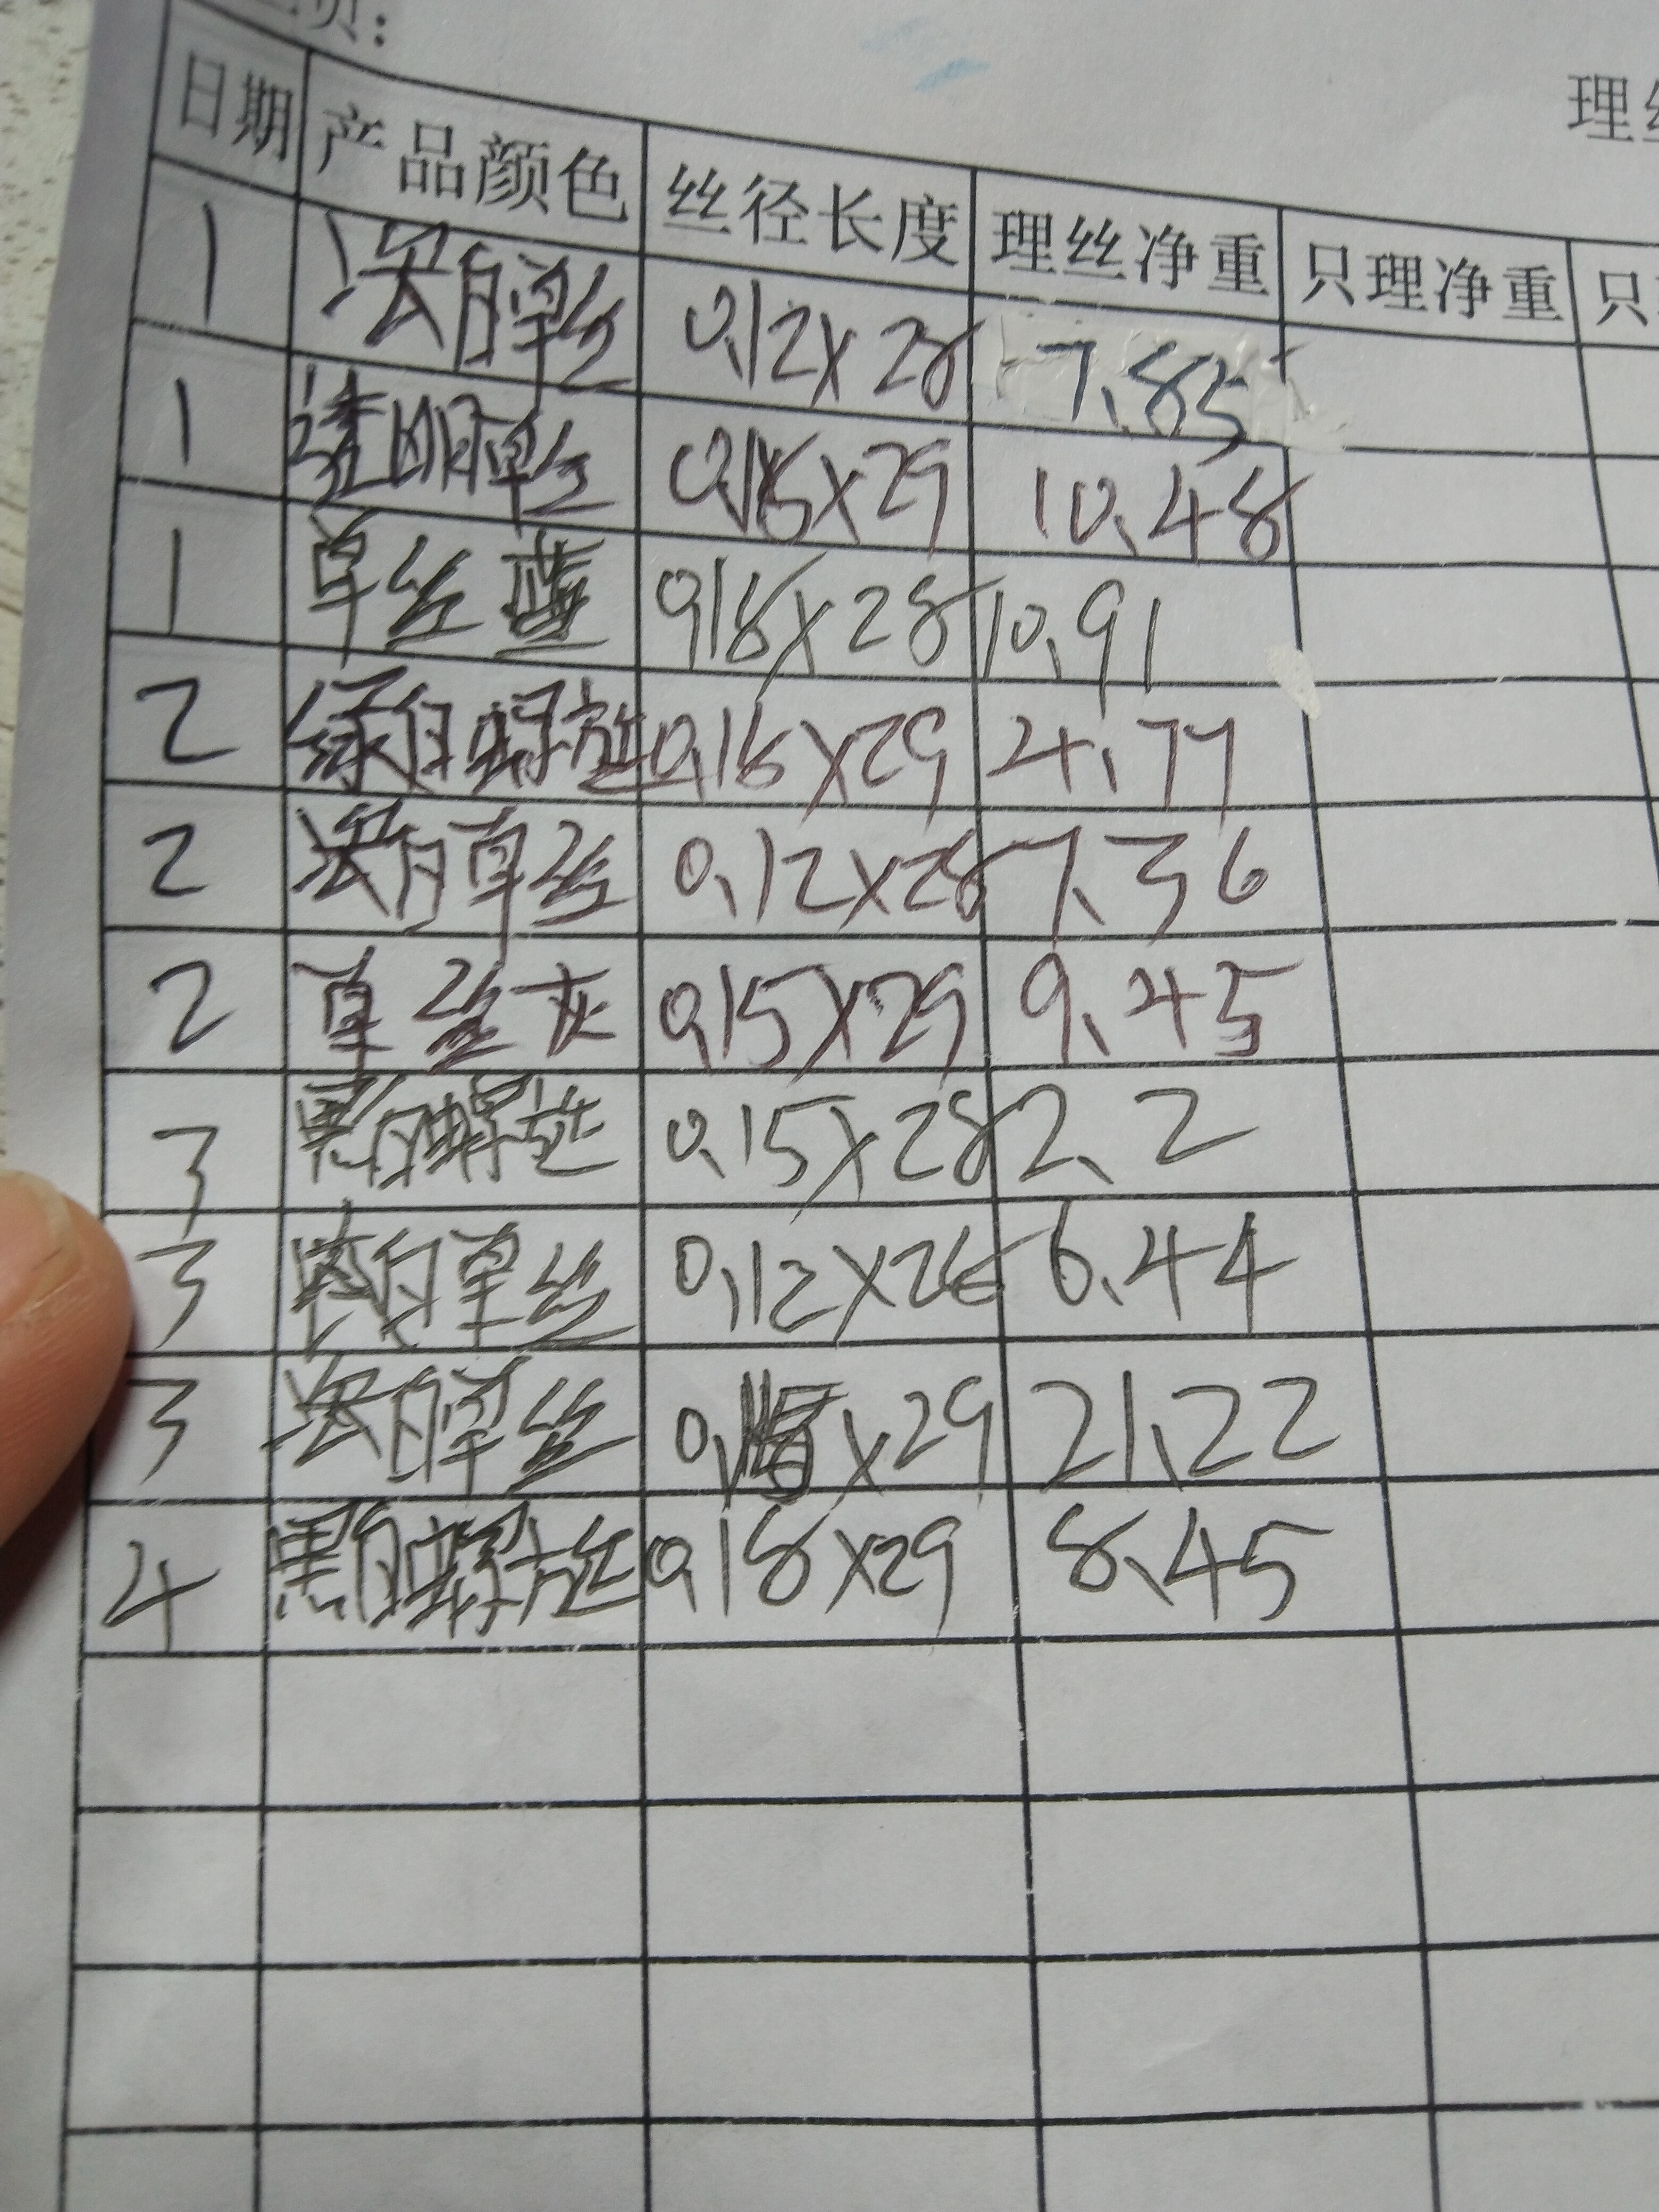 页:
理丝
日期 产品颜色 丝径长度 理丝净重 只理净重 只
1 浅月单丝 0.12×28 7.85
1 透明单丝 ×29 10.48
1 单丝蓝 0.18×28 10.91
2 绿月螺旋 0.16×29 4.77
2 浅月单丝 0.12×28 7.36
2 单丝灰 0.15×29 9.45
3 黑月螺旋 0.15×28 2.2
3 月单丝 0.12×26 6.44
3 浅月单丝 ×29 21.22
4 黑月螺旋 0.18×29 8.45